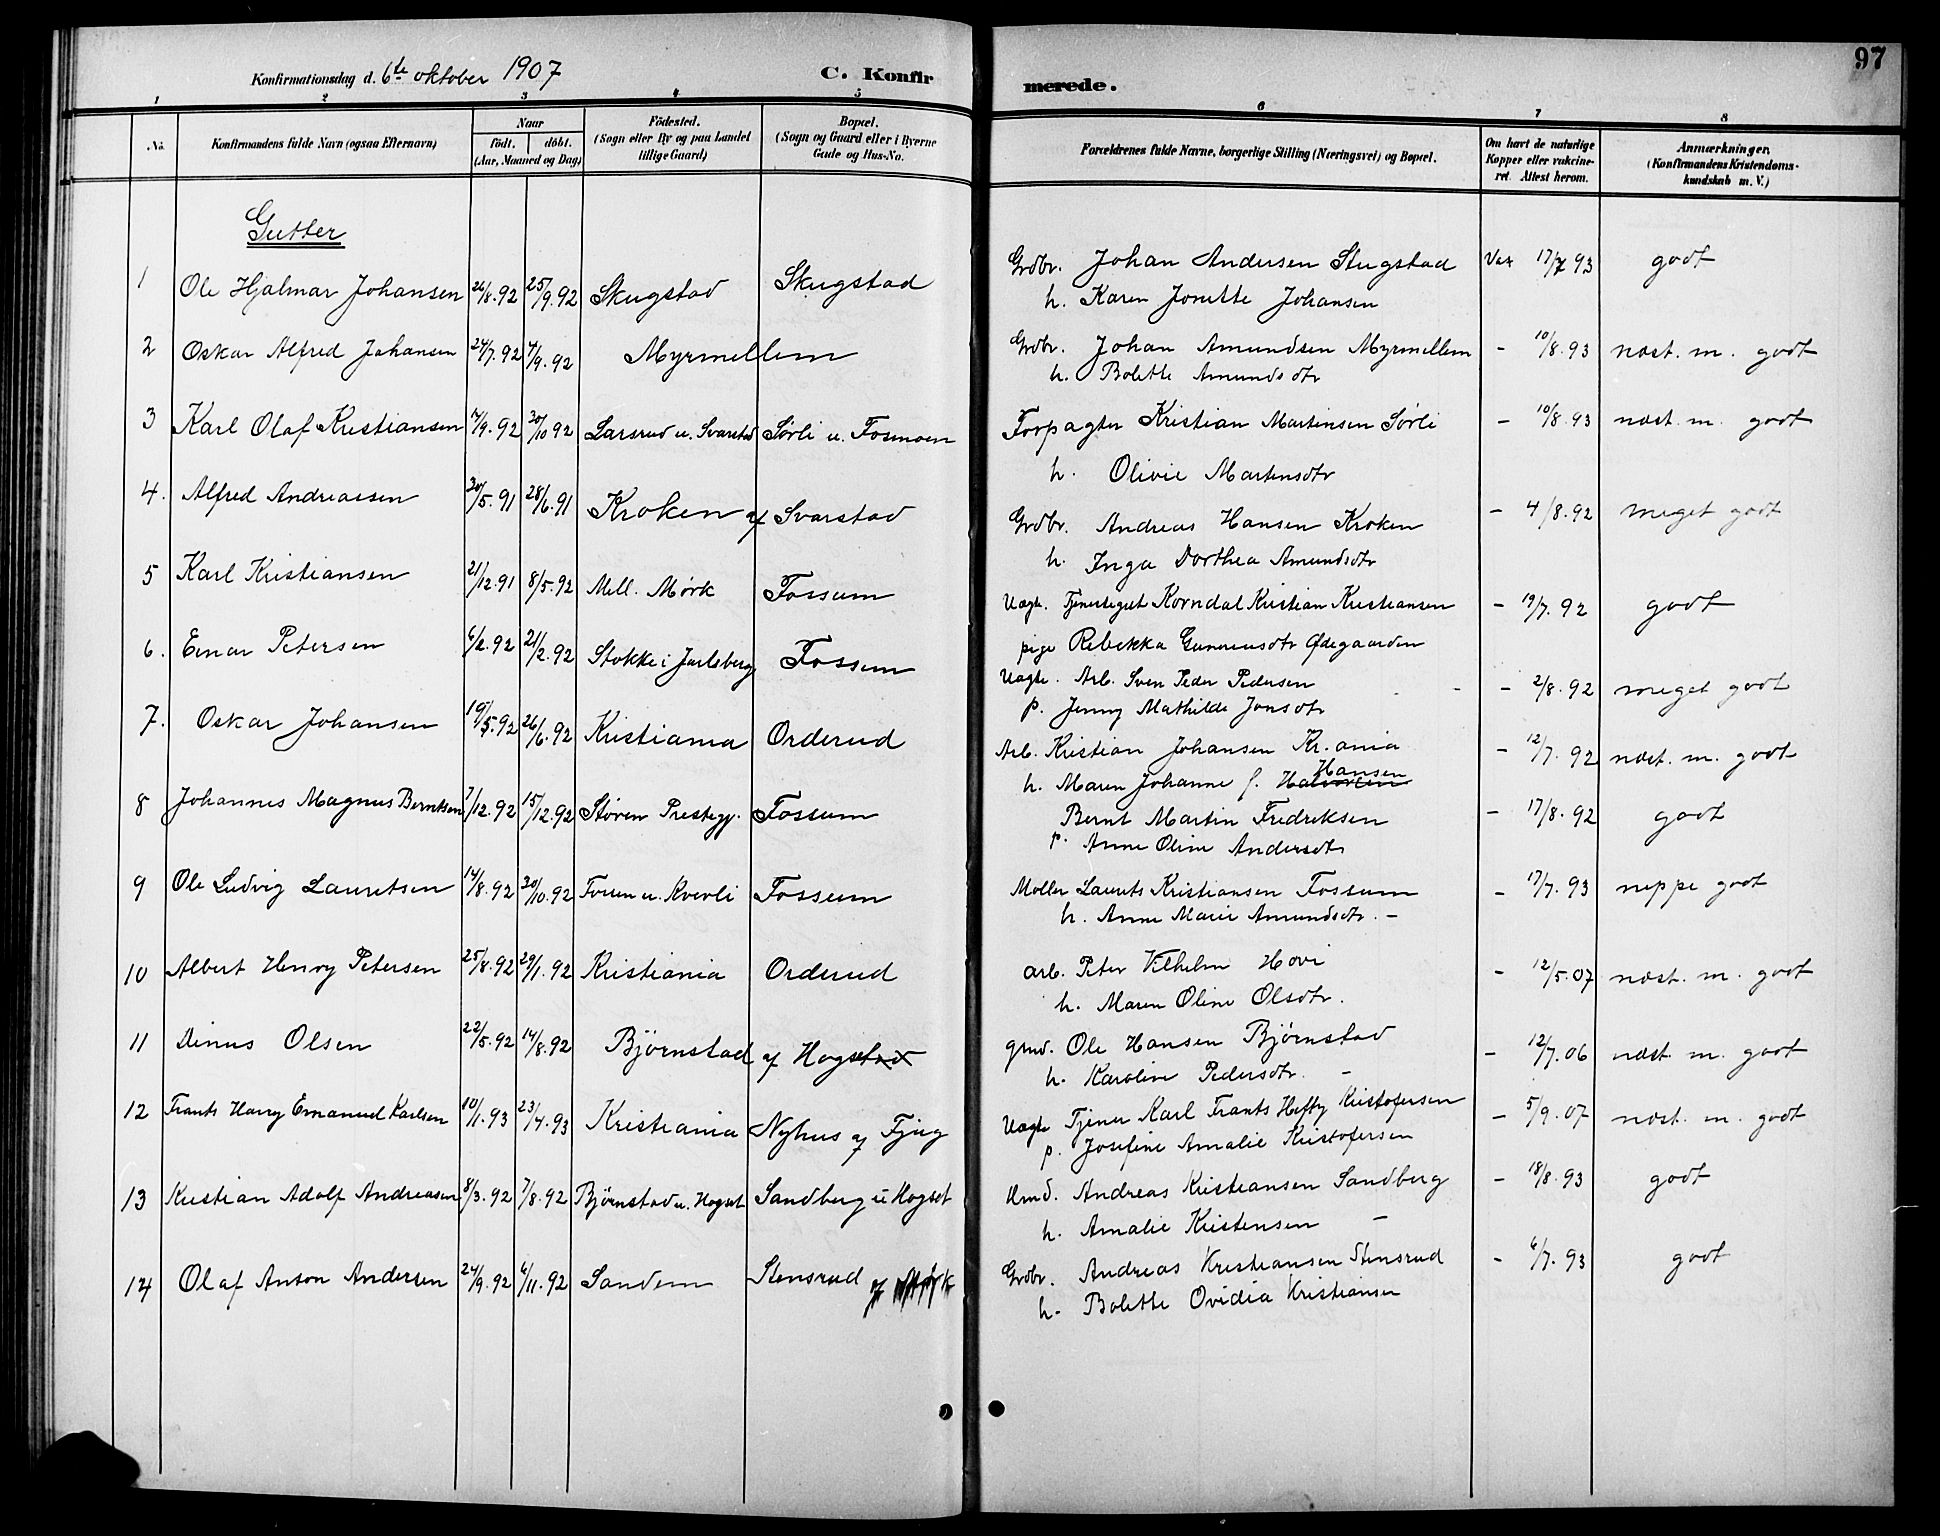 Konfirmationsdag d. 6te oktober 1907 C. Konfirmerede. 97
1 2 3 4 5 6 7 8
No. Konfirmandens fulde Navn (ogsaa Efternavn) Naar født. døbt. (Aar, Maaned og Dag) Fødested. (Sogn eller By og paa Landet tillige Gaard) Bopæl. (Sogn og Gaard eller i Byerne Gade og Hus-No. Forældrenes fulde Navne, borgerlige Stilling (Næringsvei) og Bopæl. Om havt de naturlige Kopper eller vakcineret. Attest herom. Anmærkninger. (Konfirmandens Kristendomskundskab m. V.)
Gutter
1 Ole Hjalmar Johansen 26/8.92 25/9.92 Skugstad Skugstad Grdbr. Johan Andersen Skugstad Vax 17/7 93 godt
h. Karen Jonette Johansen
2 Oskar Alfred Johansen 24/7.92 4/9.92 Myrmellem Grdbr. Johan Amundsen Myrmellem - 10/8.93 næst. m. godt
h. Bolette Amundsdtr
3 Karl Olaf Kristiansen 17/9.92 30/10 92 Larsrud u. Svarstad Sørli u. Fosmoen Forpagter Kristian Martinsen Sørli - 10/8.93 næst. m. godt
h. Olivie Martensdtr
4. Alfred Andreassen 30/5.91 28/6.91 Kroken af Svarstad Grdbr. Andreas Hansen Kroken - 4/8.92 meget godt
h. Inga Dorthea Amundsdtr
5 Karl Kristiansen 21/12.91 8/5.92 Mell. Mørk Fossum Uægte. Tjenestegut Korndal Kristian Kristiansen - 19/7.92 godt
pige Rebekka Gunnensdtr Ødegaarden
6. Einar Petersen 6/2.92 21/2.92 Stokke i Jarlsberg Fossum Uægte. Arb. Sven Peder Pedersen - 2/8.92 meget godt
p. Jenny Mathilde Jonsdtr
7. Oskar Johansen 19/5.92 26/6.92 Kristiania Orderud Arb. Kristian Johansen Kr.ania - 12/7.92 næst. m. godt
h. Maren Johanne f. Halvorsen Hansen
8 Johannes Magnus Berntsen 7/12.92 15/12.92 Støren Prestegj. Fossum Bernt Martin Fredriksen - 17/8.92 godt
p. Anne Oline Andersdtr
9 Ole Ludvig Lauritsen 14/8.92 30/10.92 Foren u. Kverli Fossum Møller Laurits Kristiansen Fossum - 17/7.93 neppe godt
h. Anne Marie Amundsdtr. -
10 Albert Henry Petersen 25/8.92 29/1.92 Kristiania Orderud arb. Peter Vilhelm Hovi - 12/5.07 næst. m. godt
h. Maren Oline Olsdtr.
11 Dinus Olsen 22/5.92 14/8.92 Bjørnstad af Hogstad grmd. Ole Hansen Bjørnstad - 12/7.06 næst. m. godt
h. Karoline Pedersdtr. -
12 Frants Harry Emanuel Karlsen 10/1.93 23/4.93 Kristiania Nyhus af Fjug Uægte Tjener Karl Frants Hefty Kristofersen - 5/9.07 næst. m. godt
p. Josefine Amalie Kristofersen
13 Kristian Adolf Andreasen 8/3.92 7/8.92 Bjørnstad u. Hogset Sandberg u Hogset Hmd. Andreas Kristiansen Sandberg - 18/8.93 godt
h. Amalie Kristensen -
14 Olaf Anton Andersen 24/9.92 6/11.92 Sandem Stensrud af Mørk Grdbr. Andreas Kristiansen Stensrud - 6/7.93 godt
h. Bolette Ovidia Kristiansen